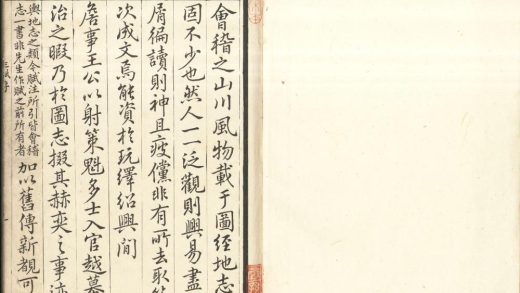 會稽之山川風物載于圖經地志
固不少也然人一一泛觀則興易盡
屑徧讀則神且疲儻非有所去取
次成文烏能資於玩繹紹興間
詹事王公以射策魁多士入官越幕
治之暇乃於圖志掇其赫奕之事迹
輿地志之類今賦注所引皆會稽
志一書非先生作賦之前所有者
加以舊傳新覩可